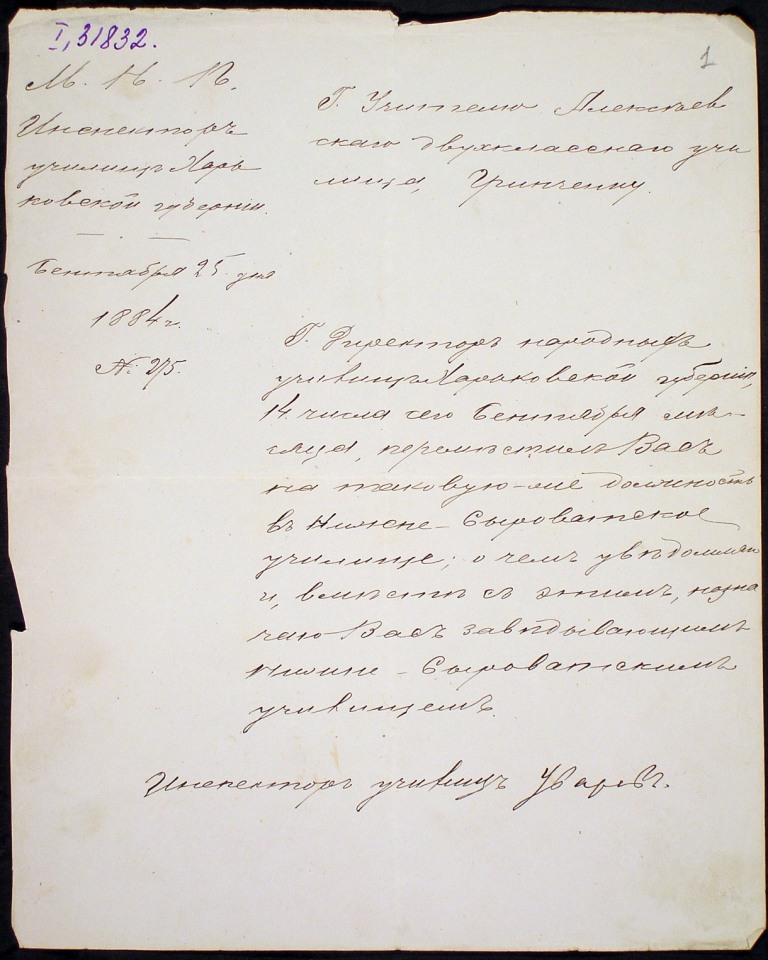 I, 31832.
1
М. Н. П.
Инспекторъ
училищъ Харь
ковской губерніи.
Сентября 25 дня
1884 г.
№ 275.
Г. Учителю Алексѣев
скаго двухкласснаго учи
лища, Гринченку.
Г. Директоръ народныхъ
училищъ Харьковской губерніи,
14 числа сего Сентября мѣ-
сяца, перемѣстилъ Васъ
на таковую-же должность
въ Нижне-Сыроватское
училище; о чемъ увѣдомляя
и, вмѣстѣ съ этимъ, назна
чаю Васъ завѣдывающимъ
Нижне-Сыроватскимъ
училищемъ.
Инспекторъ училищъ